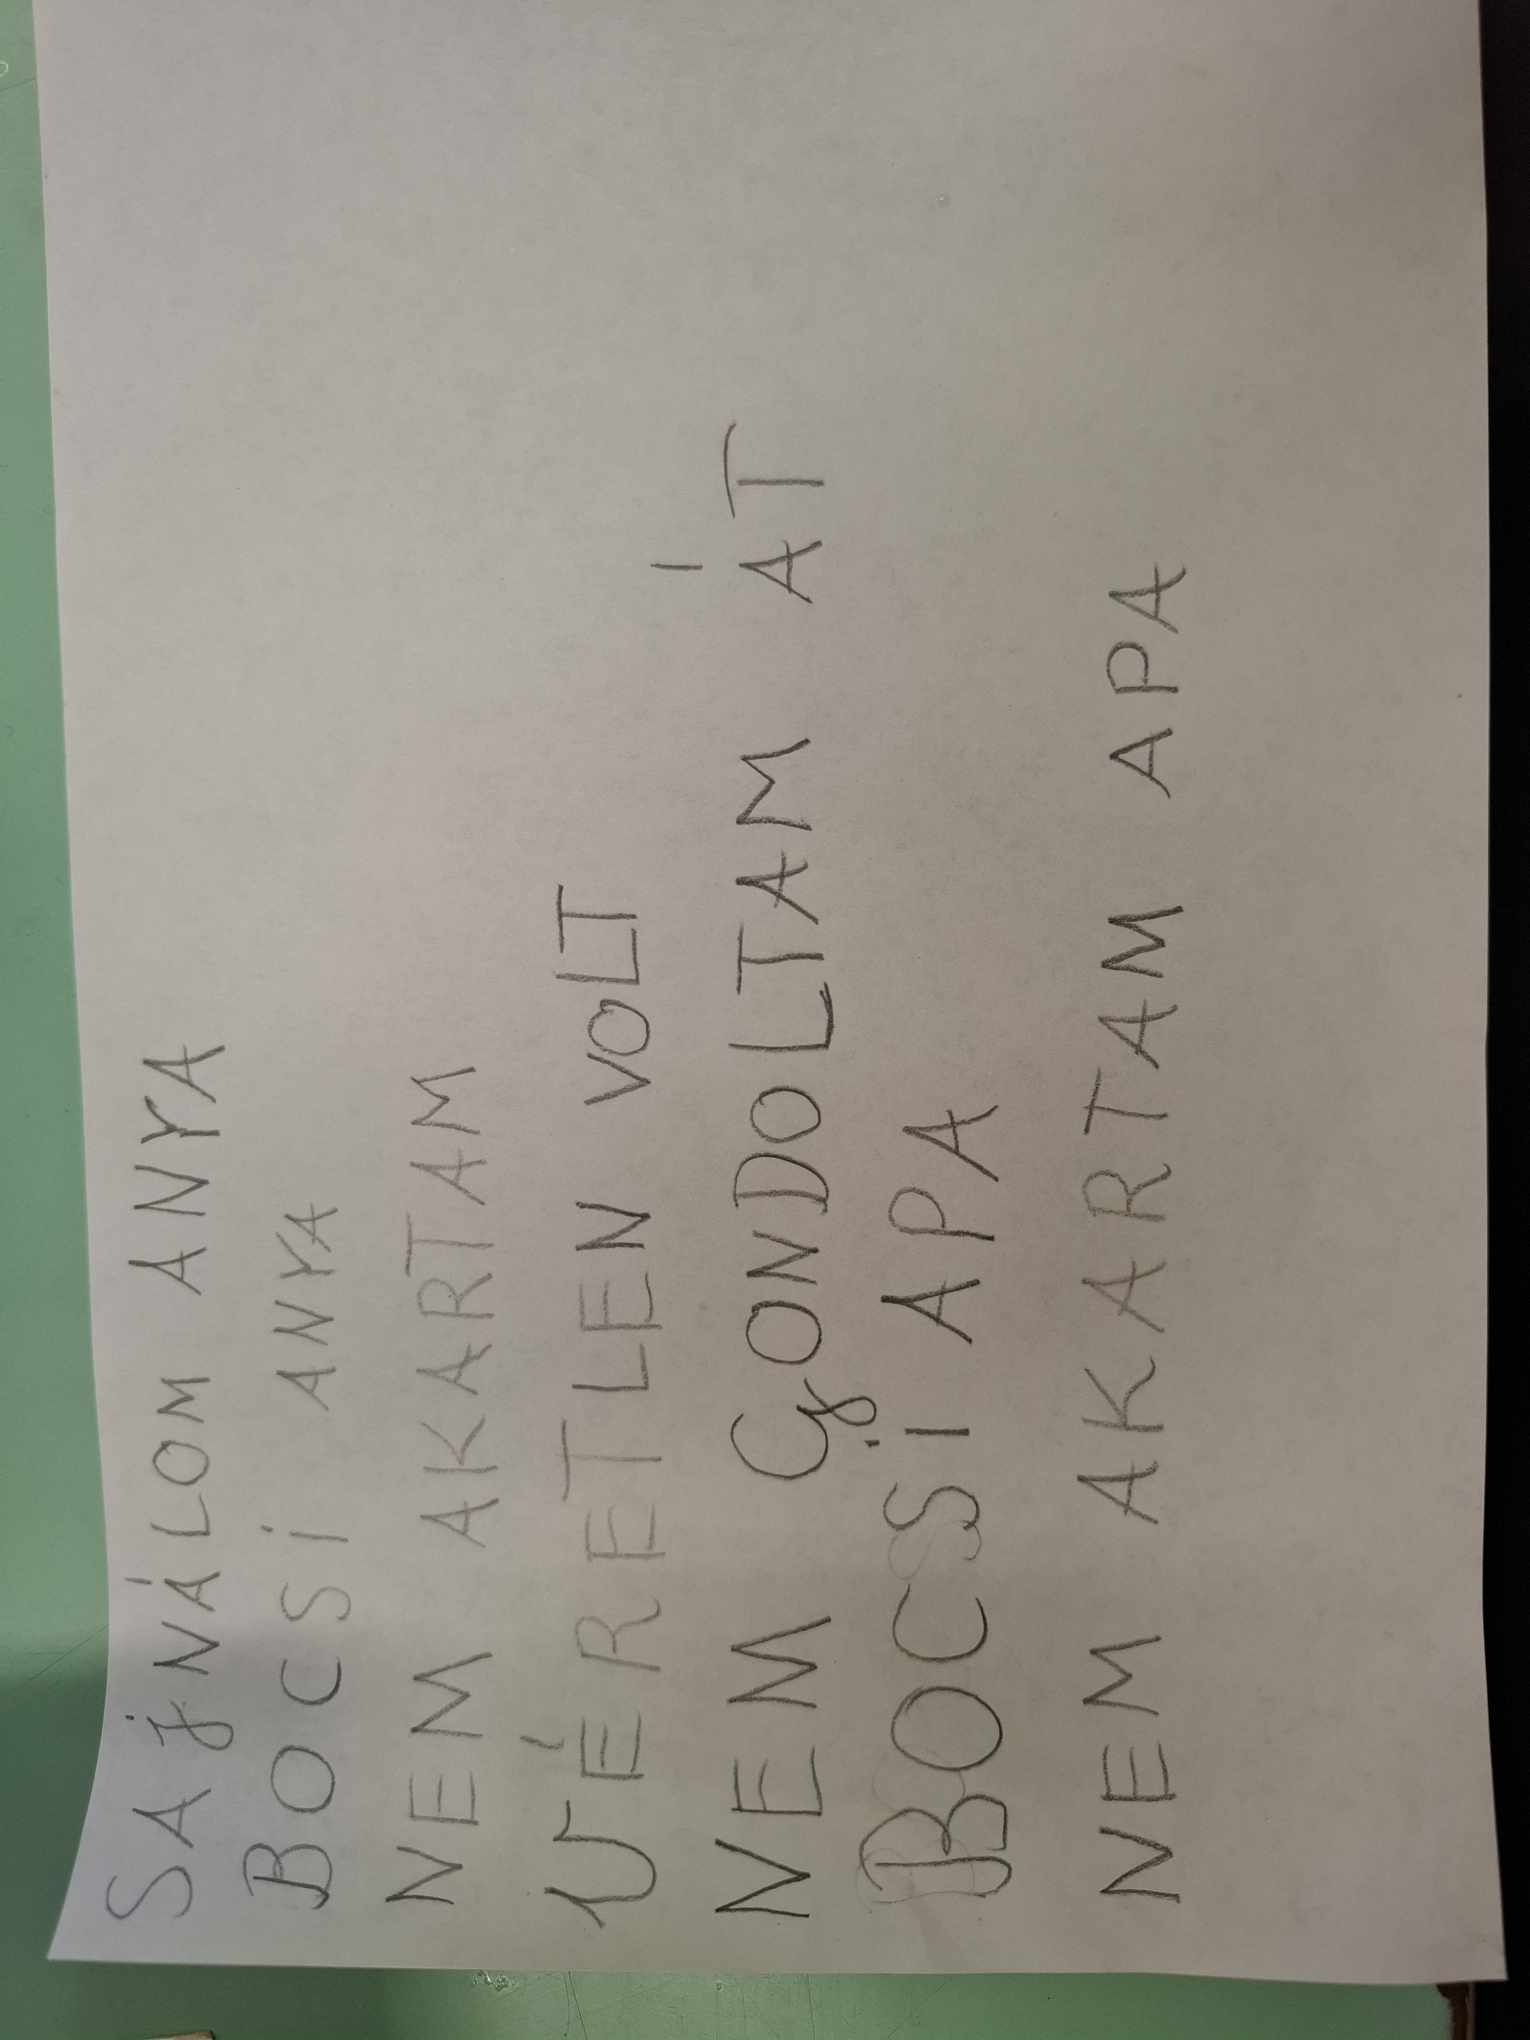 SAjNÁLOM ANYA
BOCSi ANYA
NEM AKARTAM
VÉRETLEN VOLT
NEM GONDOLTAM ÁT
BOCSi APA
NEM AKARTAM APA